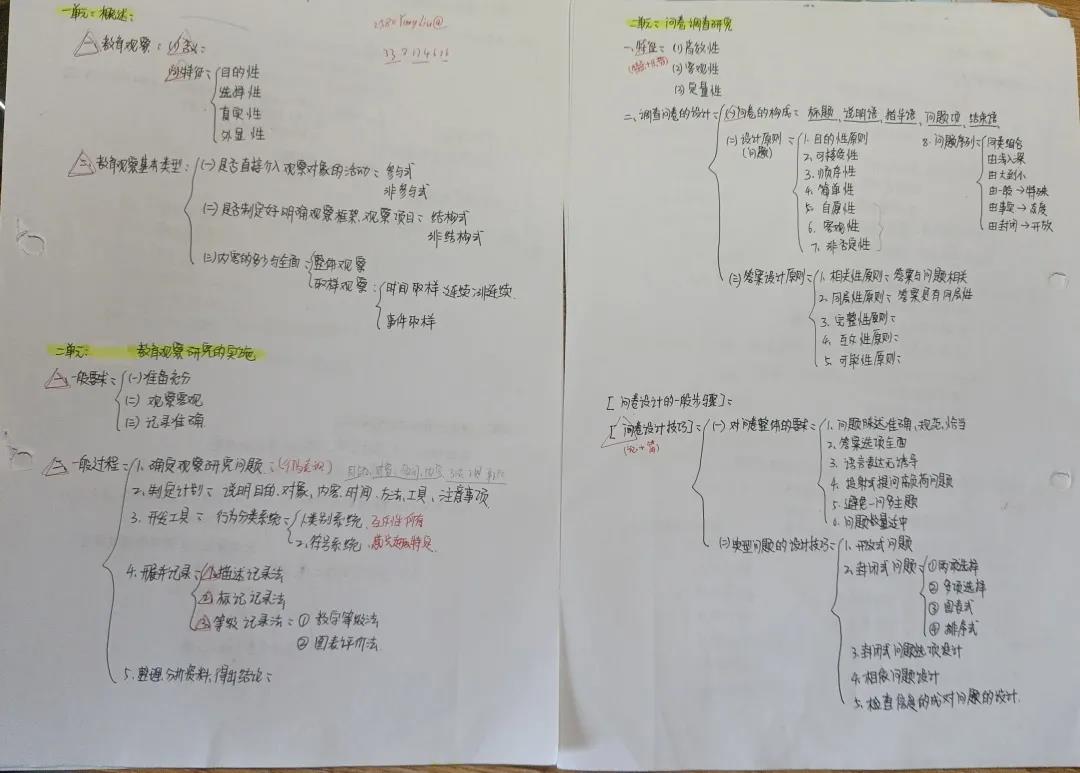 一单元：概述：
一 教育观察：(1)含义：
(2)特征：目的性
选择性
真实性
外显性
二 教育观察基本类型：(一)是否直接介入观察对象的活动：参与式
非参与式
(二)是否制定好明确观察框架、观察项目：结构式
非结构式
(三)内容的多少与全面：整体观察
取样观察：时间取样：连续、非连续
事件取样
二单元： 教育观察研究的实施
一 一般要求：(一)准备充分
(二) 观察客观
(三) 记录准确
二 一般过程：1.确定观察研究问题：
2.制定计划：说明目的、对象、内容、时间、方法、工具、注意事项
3.开发工具：行为分类系统：1.类别系统
2.符号系统
4.开展并记录：①描述记录法
②标记记录法
③等级记录法：① 数字等级法
② 图表评价法
5.整理分析资料，得出结论：
二单元：问卷调查研究
一、特征：(1)高效性
(2)客观性
(3)定量性
二、调查问卷的设计：(一)问卷的构成：标题、说明语、指导语、问题项、结束语
(二)设计原则：1.目的性原则
(问题)
2.可接受性
3.顺序性
4.简单性
5.自愿性
6.客观性
7.非否定性
8.问题序列：同类组合
由浅入深
由大到小
由一般→特殊
由事实→态度
由封闭→开放
(三)答案设计原则：1.相关性原则：答案与问题相关
2.同层性原则：答案具有同层性
3.完整性原则：
4.互斥性原则：
5.可能性原则：
[问卷设计的一般步骤]：
[问卷设计技巧]：(一)对问卷整体的要求：1.问题陈述准确、规范、恰当
2.答案选项全面
3.语言表达无诱导
4.投射式提问高负荷问题
5.避免一问多主题
6.问题数量适中
(二)典型问题的设计技巧：1.开放式问题
2.封闭式问题：①两项选择
②多项选择
③图表式
④排序式
3.封闭式问题选项设计
4.相依问题设计
5.检查信息的成对问题的设计.